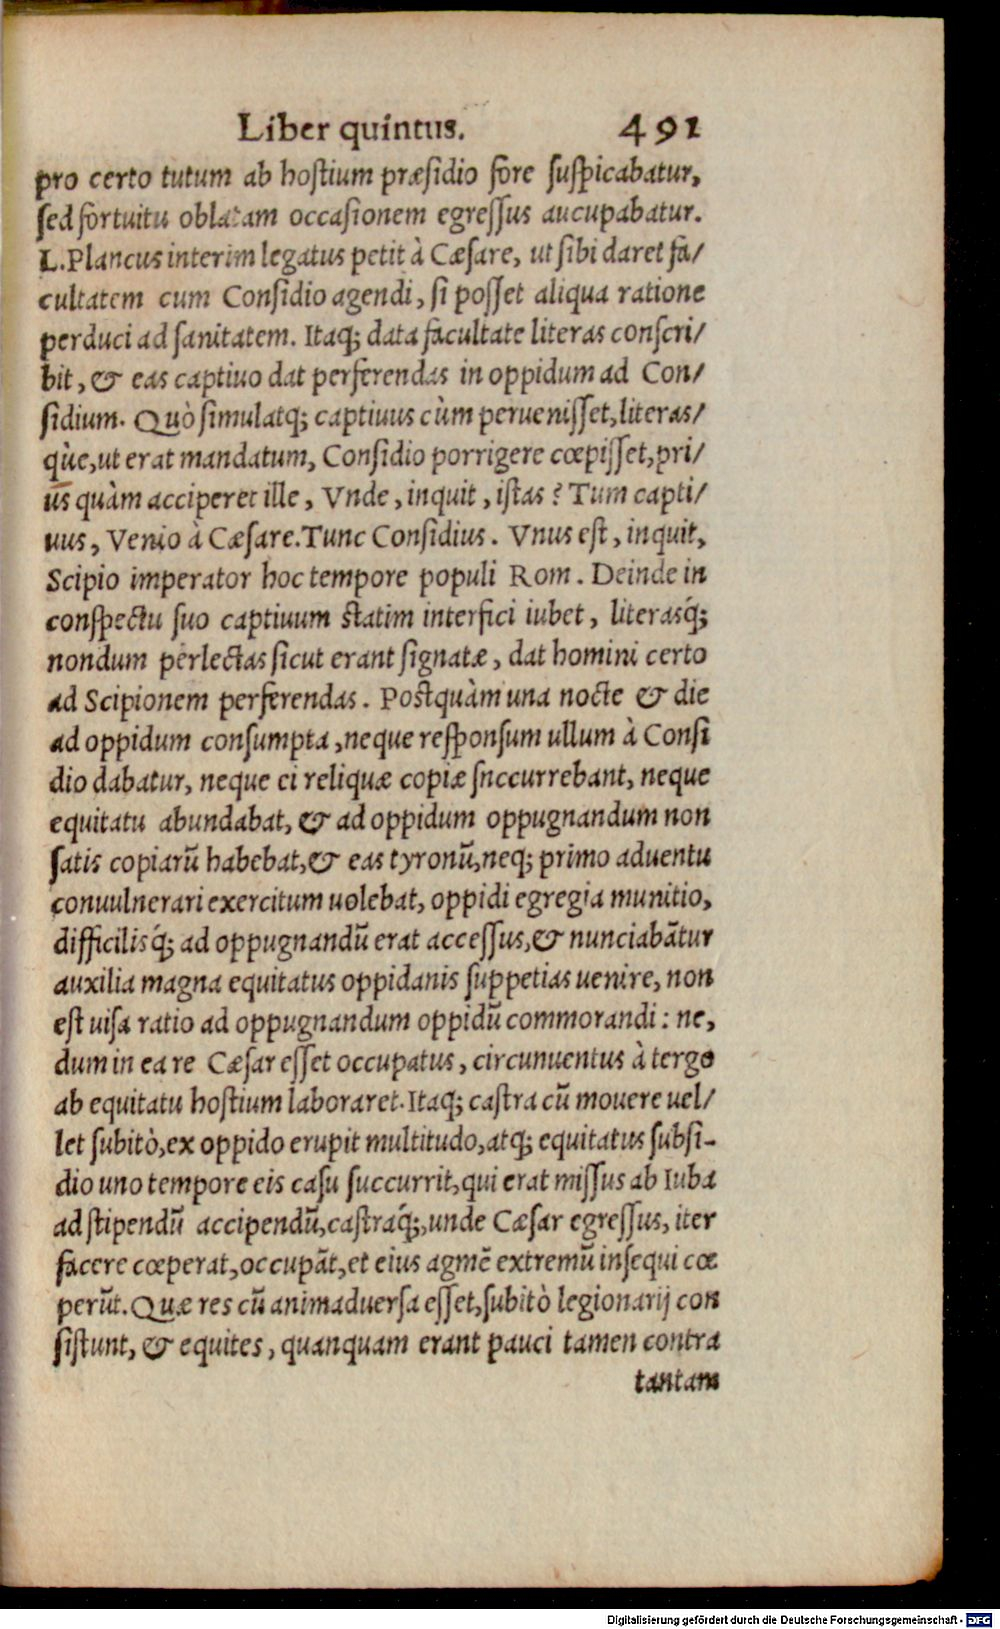 Liber quintus. 491
pro certo tutum ab hostium præsidio fore suspicabatur,
sed fortuitu oblatam occasionem egressus aucupabatur.
L.Plancus interim legatus petit à Cæsare, ut sibi daret fa/
cultatem cum Considio agendi, si posset aliqua ratione
perduci ad sanitatem. Itaq; data facultate literas conscri/
bit, & eas captiuo dat perferendas in oppidum ad Con/
sidium. Quò simulatq; captiuus cùm peruenisset, literas/
q̀ue, ut erat mandatum, Considio porrigere cœpisset, pri/
us quàm acciperet ille, Vnde, inquit, istas? Tum capti/
uus, Venio à Cæsare. Tunc Considius. Vnus est, inquit,
Scipio imperator hoc tempore populi Rom. Deinde in
conspectu suo captiuum statim interfici iubet, literasq́;
nondum perlectas sicut erant signatæ, dat homini certo
ad Scipionem perferendas. Postquàm una nocte & die
ad oppidum consumpta, neque responsum ullum à Consi
dio dabatur, neque ei reliquæ copiæ snccurrebant, neque
equitatu abundabat, & ad oppidum oppugnandum non
satis copiarũ habebat, & eas tyronũ, neq; primo aduentu
conuulnerari exercitum uolebat, oppidi egregia munitio,
difficilisq́; ad oppugnandũ erat accessus, & nunciabãtur
auxilia magna equitatus oppidanis suppetias uenire, non
est uisa ratio ad oppugnandum oppidũ commorandi: ne,
dum in ea re Cæsar esset occupatus, circunuentus à tergo
ab equitatu hostium laboraret. Itaq; castra cũ mouere uel/
let subitò, ex oppido erupit multitudo, atq; equitatus subsi-
dio uno tempore eis casu succurrit, qui erat missus ab Iuba
ad stipendũ accipendũ, castraq́;, unde Cæsar egressus, iter
facere cœperat, occupãt, et eius agmẽ extremũ insequi cœ
perũt. Quæ res cũ animaduersa esset, subitò legionarij con
sistunt, & equites, quanquam erant pauci tamen contra
tantam
Digitalisierung gefördert durch die Deutsche Forschungsgemeinschaft - DFG